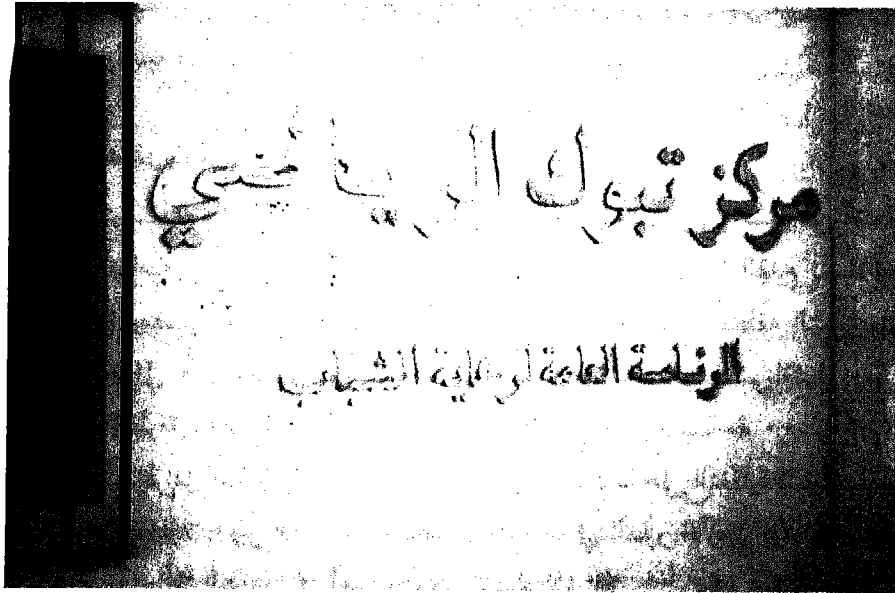 مركز تبوك الرياضي
الرئاسة العامة لرعاية الشباب